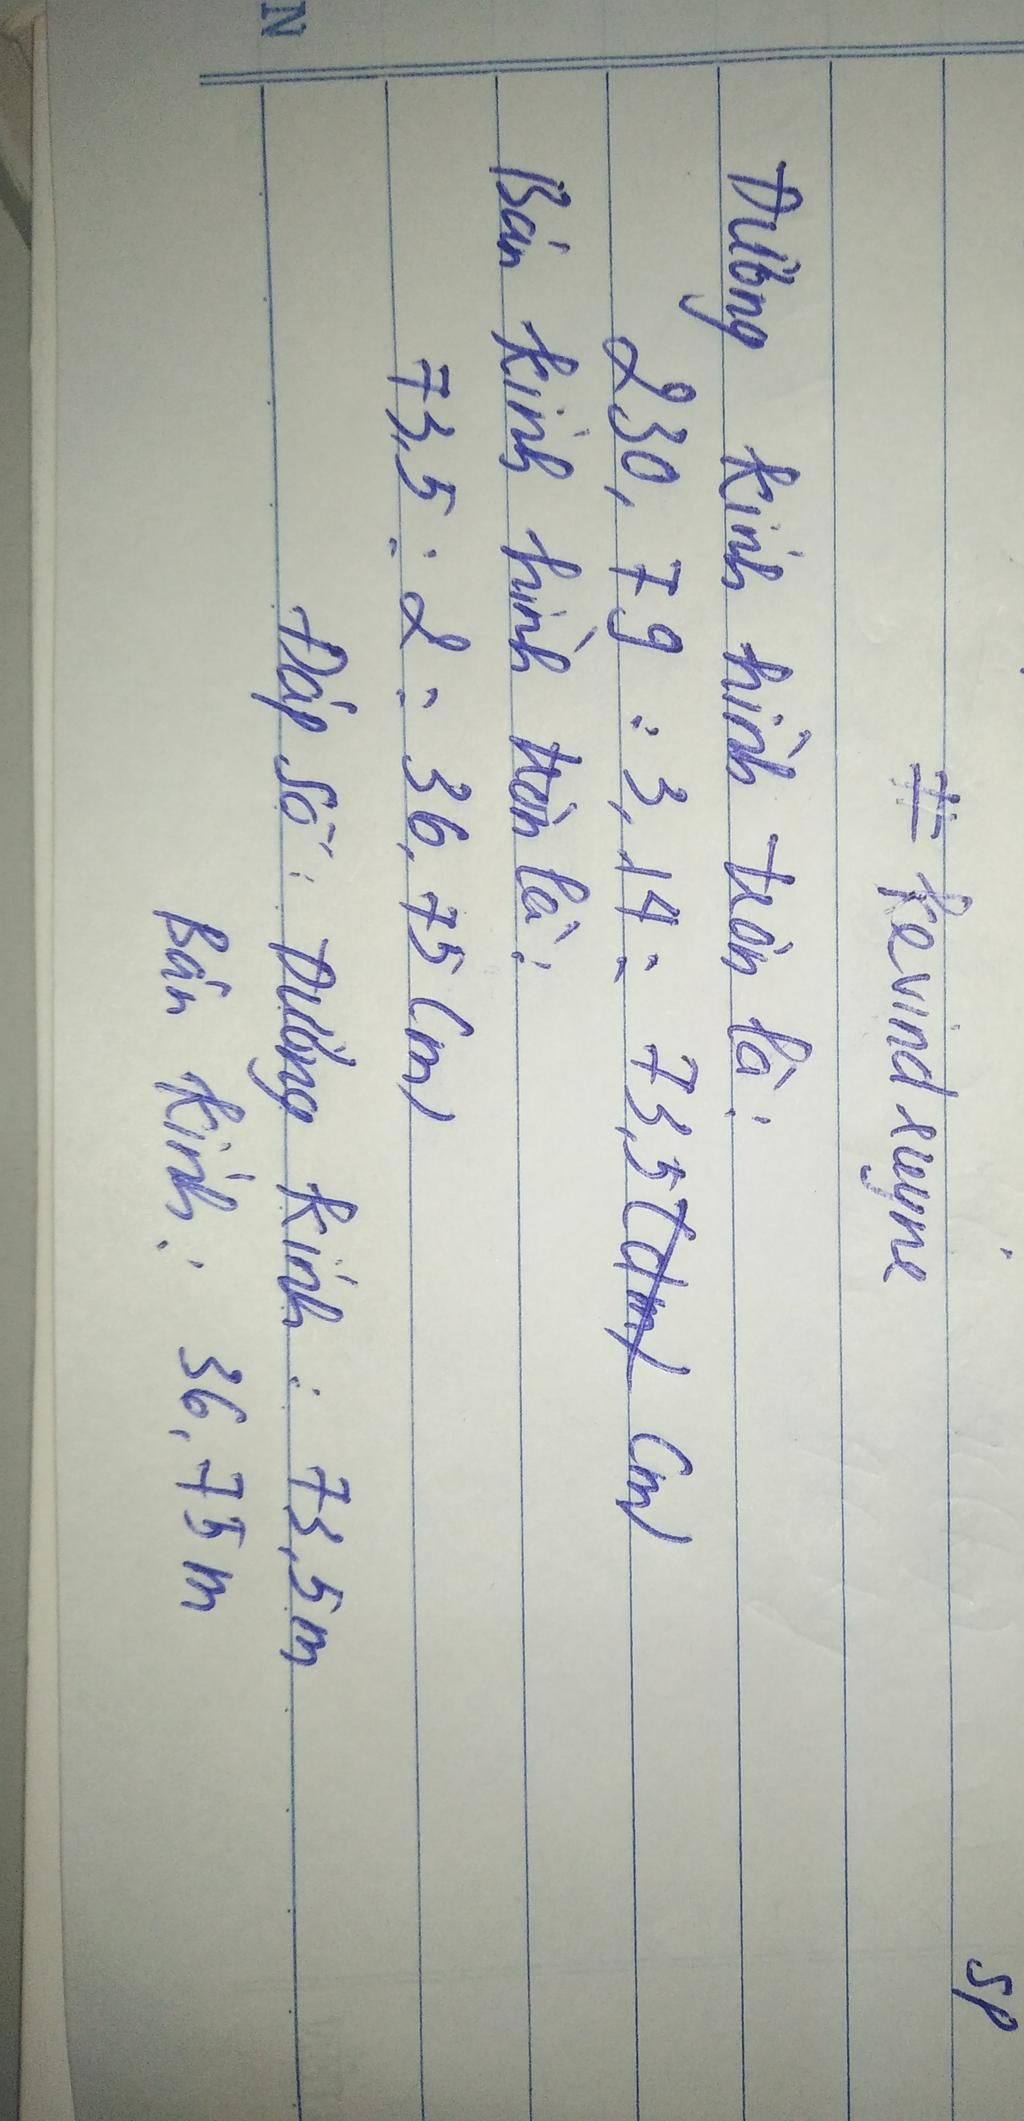 SP
# kevindruyne
Đường kính hình tròn là:
230,79 : 3,14 = 73,5 (dm) (m)
Bán kính hình tròn là:
73,5 : 2 = 36,75 (m)
Đáp số: Đường kính: 73,5m
Bán kính: 36,75m
N